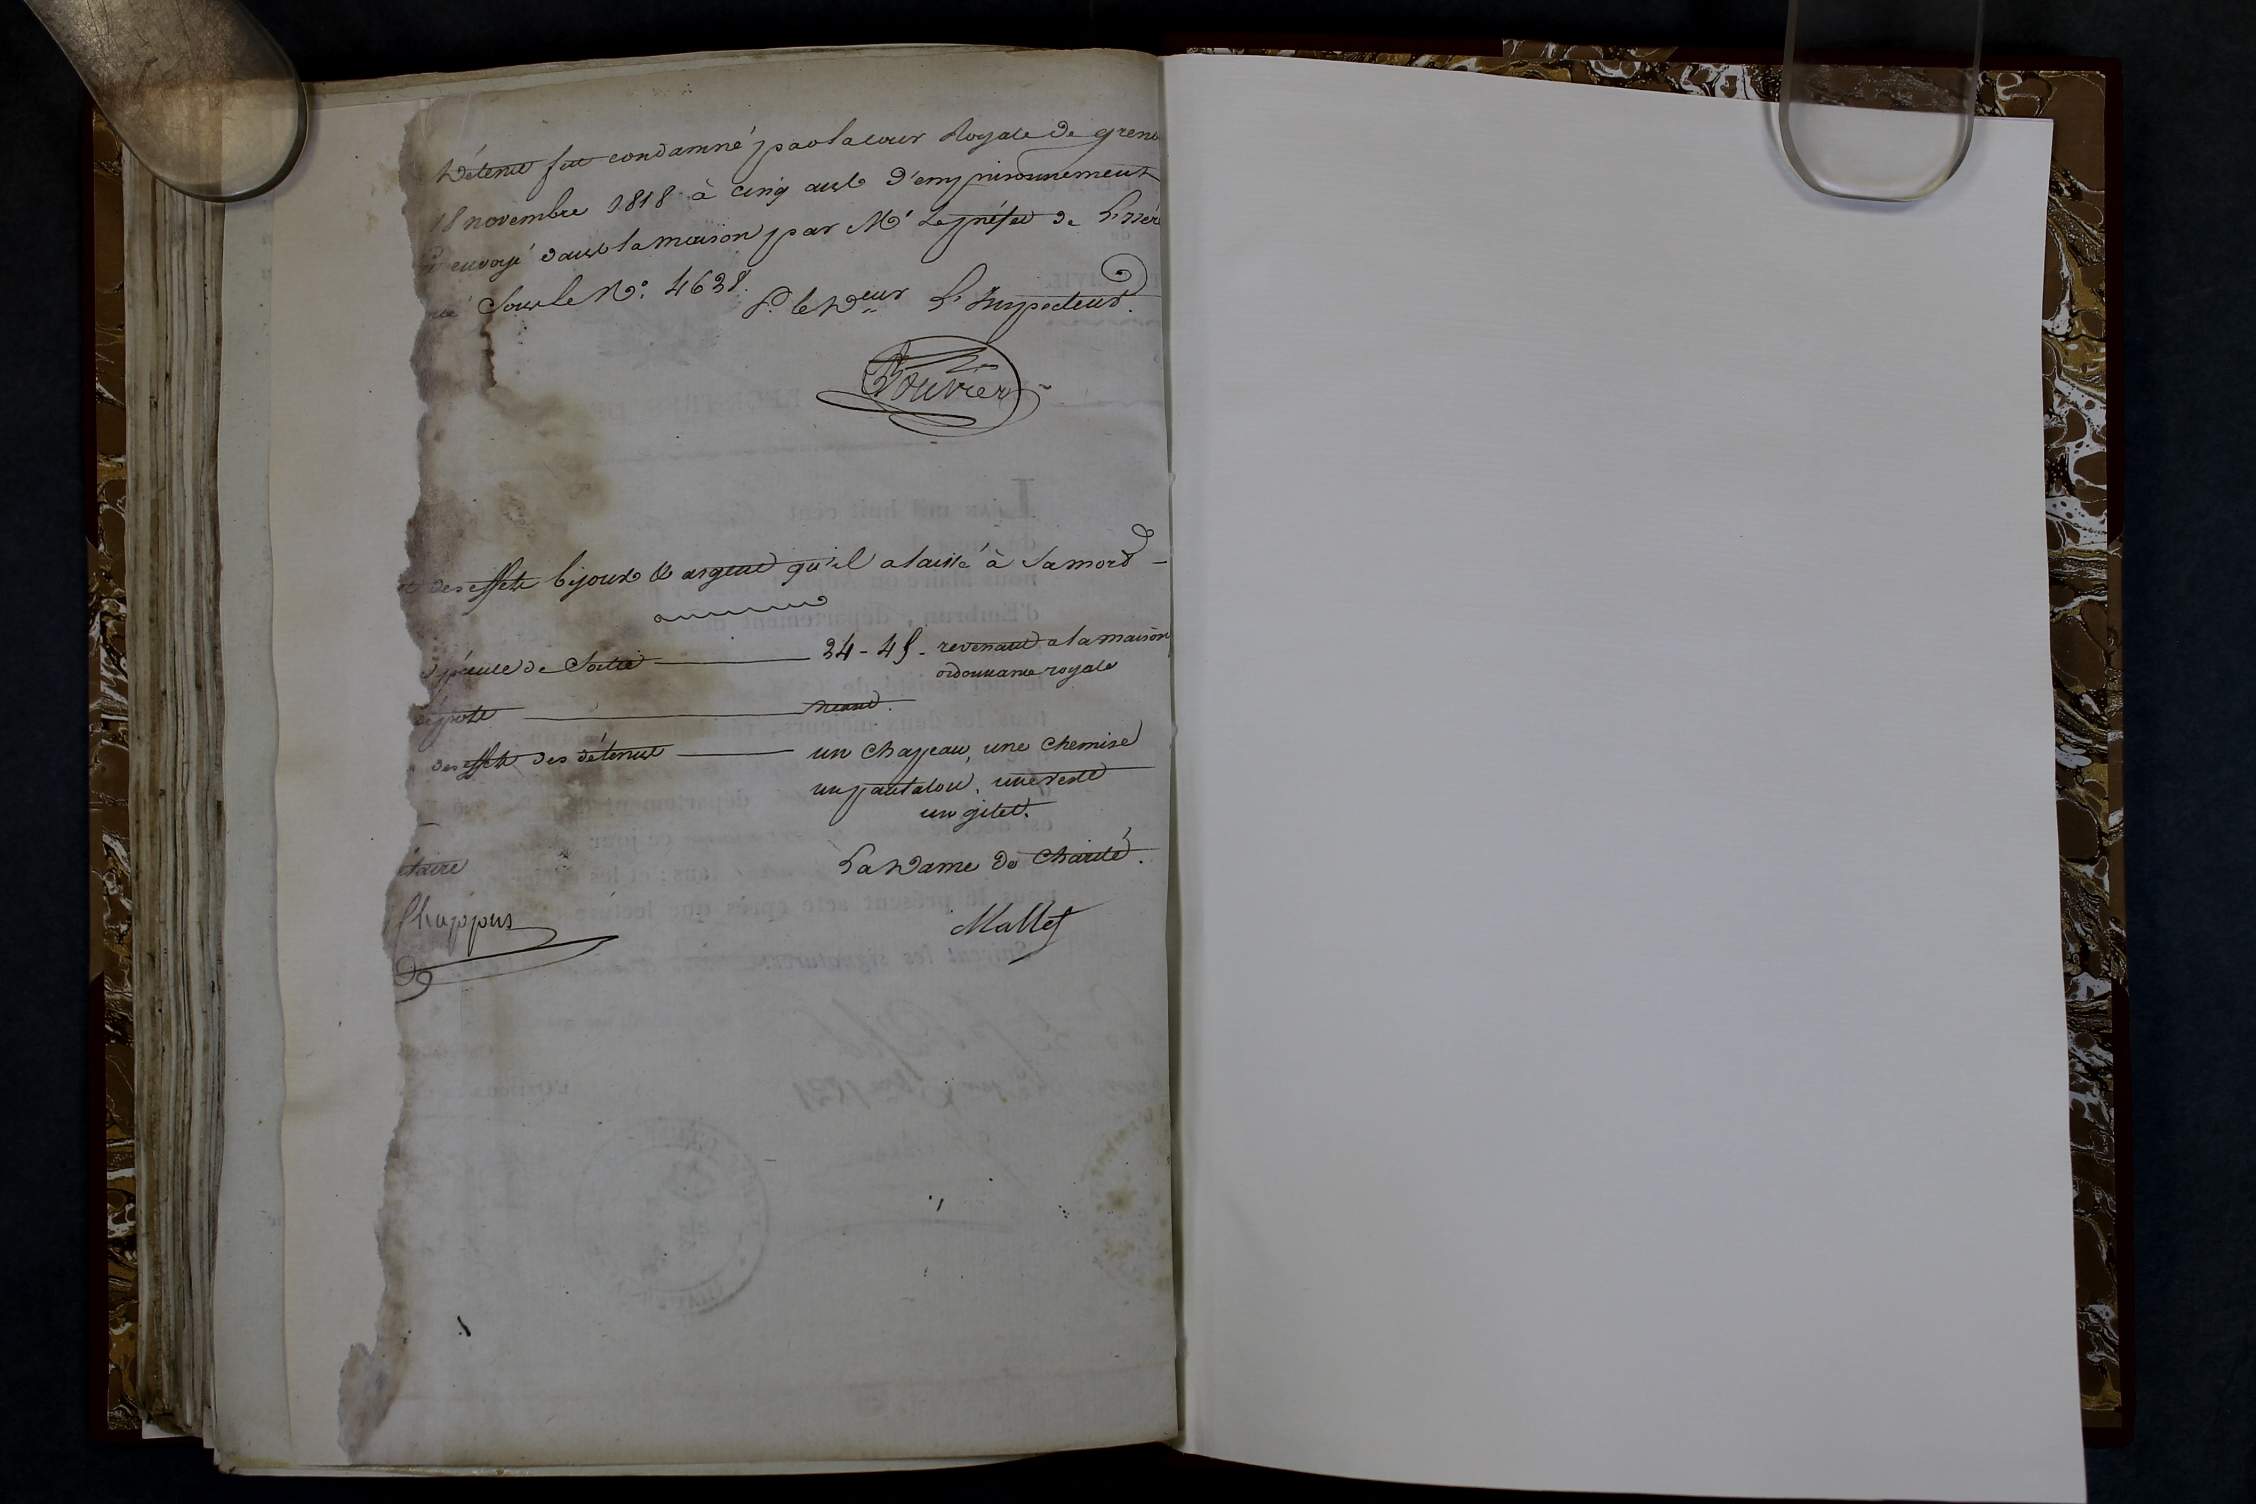 Détenu fut condamné par la cour Royale de greno
18 novembre 1818 à cinq ans d'emprisonnement
envoyé dans la maison par Mr Le préfet de L'isère
Sous le No. 4638.
P. le Deur L'Inspecteur.
Bouvier
des effets bijoux & argent qu'il a laissé à sa mort -
de Sortie 24-45. revenant a la maison
ordonnance royale
néant.
des effets des détenus un chapeau, une chemise
un pantalon, une veste
un gilet.
étaire La Dame de Charité.
Chappus Mallet